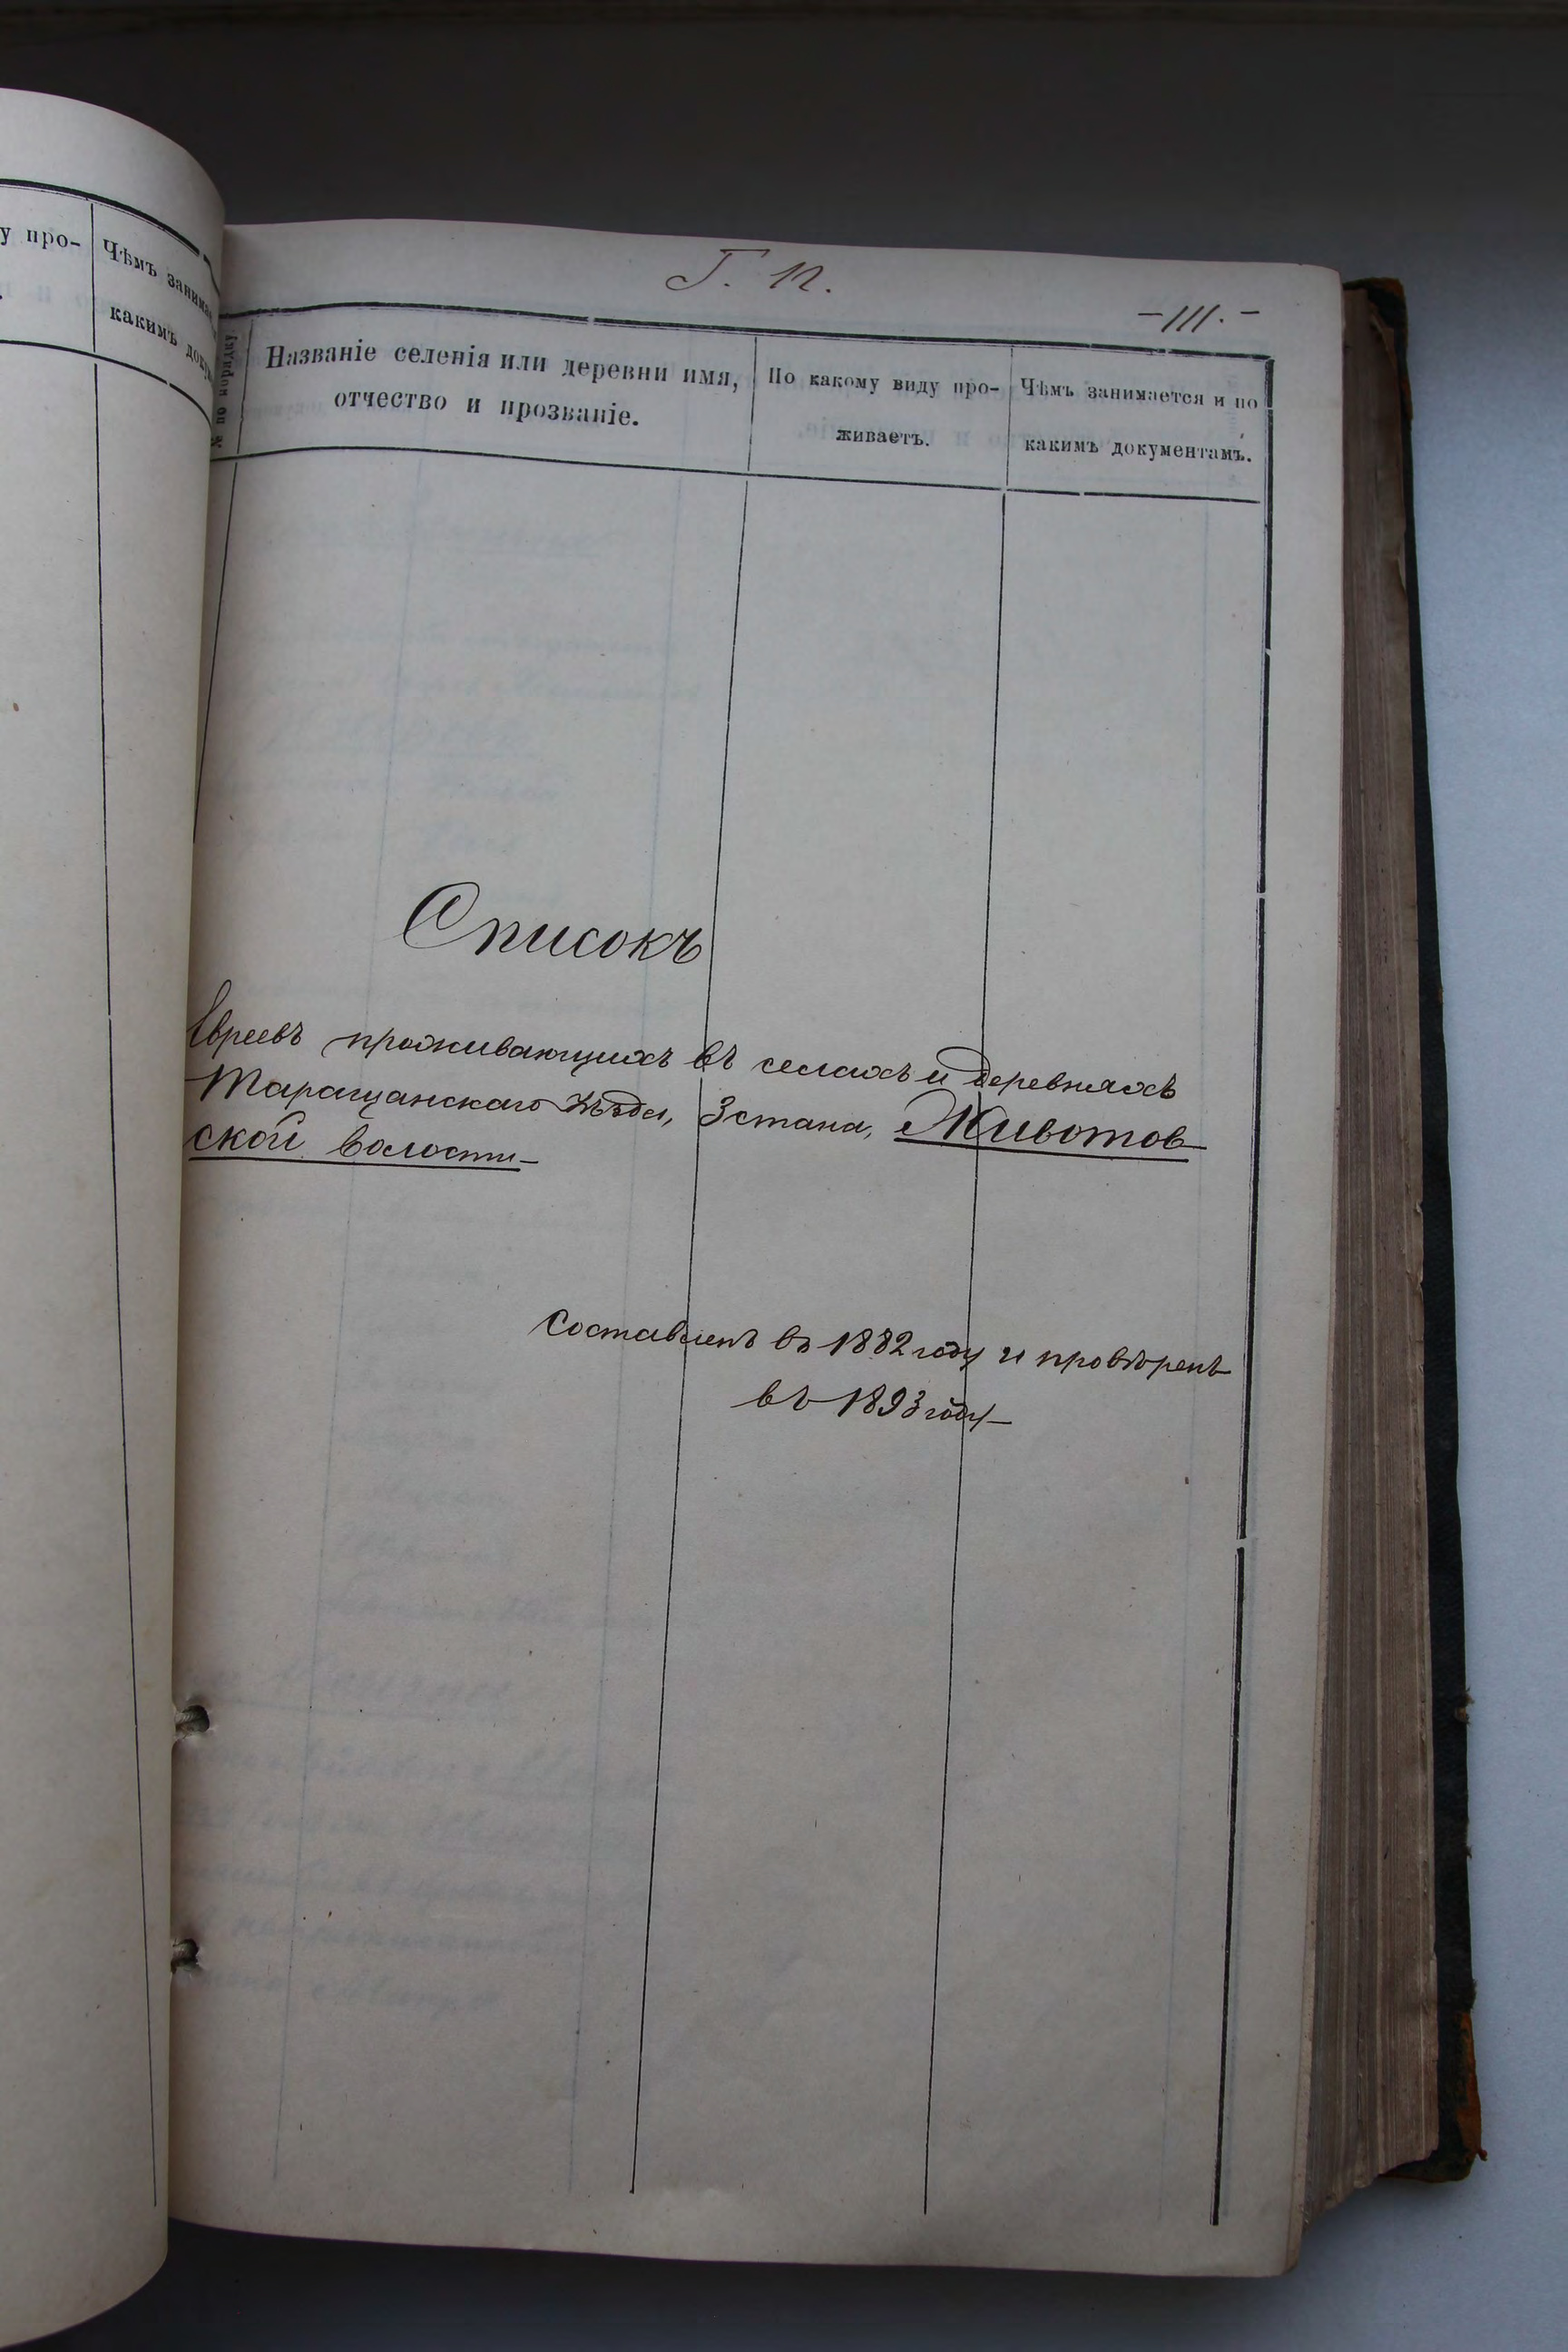 у про-
Чѣмъ занима
какимъ доку
Г. П.
-111.-
№ по порядку
Названіе селенія или деревни имя,
отчество и прозваніе.
По какому виду про-
живаетъ.
Чѣмъ занимается и по
какимъ документамъ.
Списокъ
Евреевъ проживающихъ въ селахъ и деревняхъ
Таращанскаго уѣзда, 3 стана, Животов-
ской волости-
Составленъ въ 1882 году и провѣренъ
въ 1893 году-